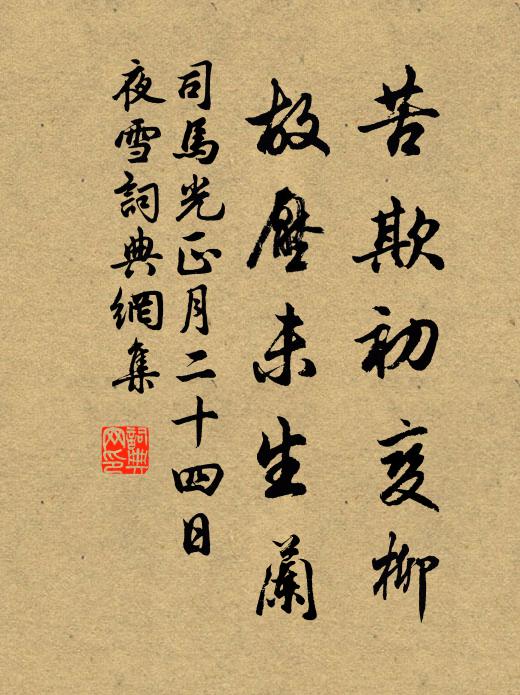 苦欺初变柳
故壓未生蘭
司馬光正月二十四日
夜雪詞典網集
詞典網印